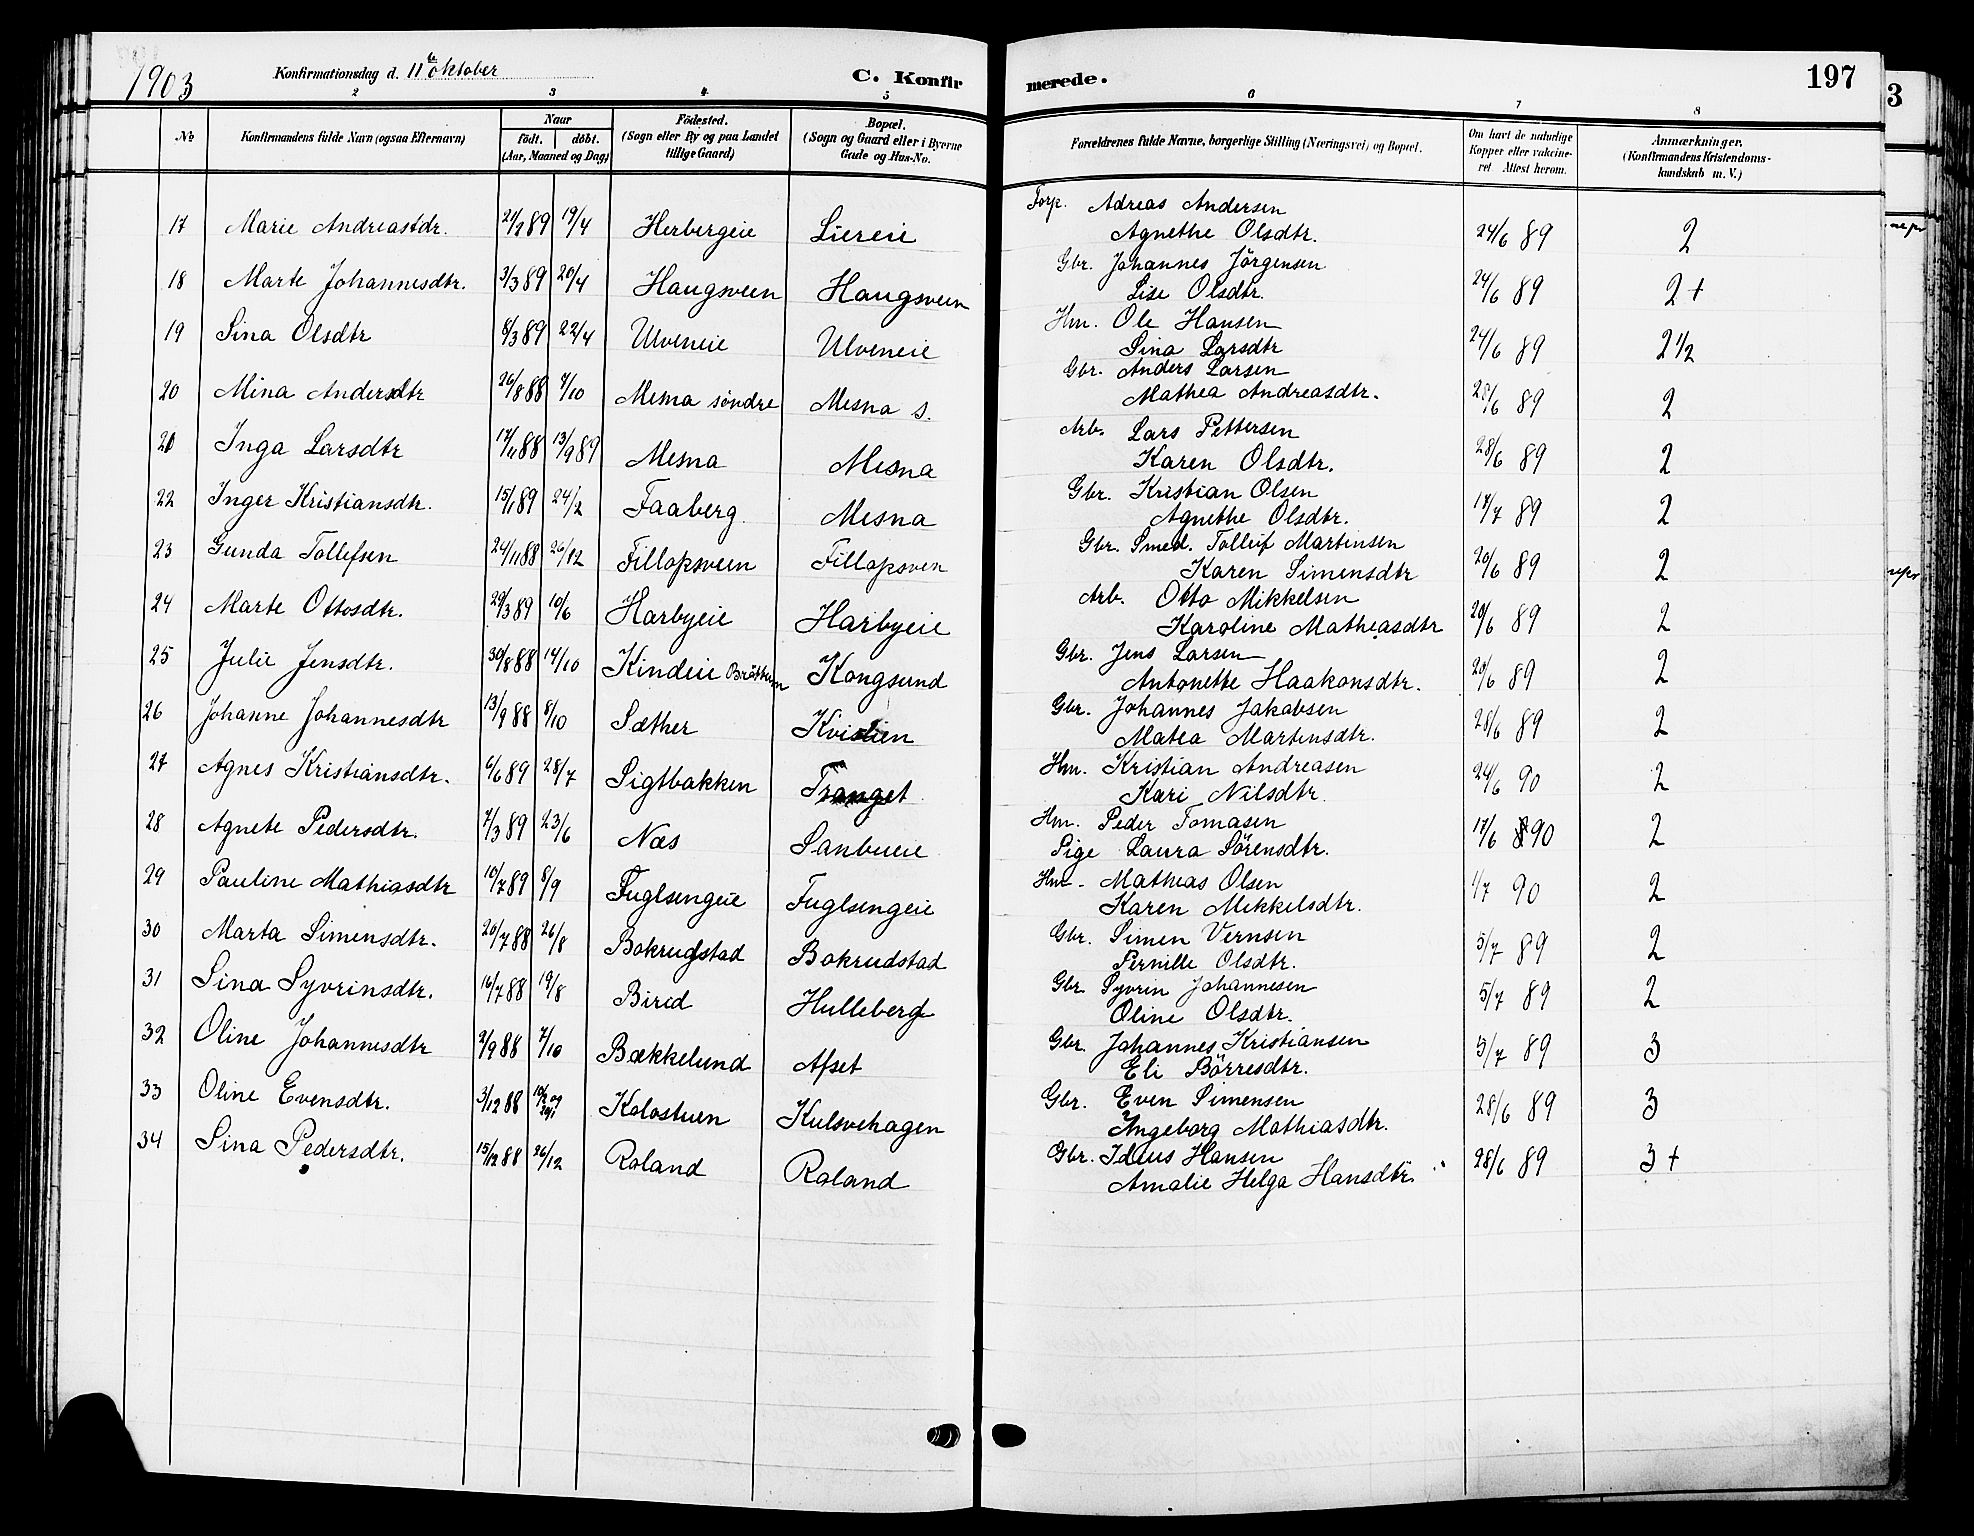 1903
Konfirmationsdag d. 11te oktober
C. Konfir merede.
197
3
2 3 4 5 6 7 8
No
Konfirmandens fulde Navn (ogsaa Efternavn)
Naar
födt. döbt.
(Aar, Maaned og Dag)
Födested.
(Sogn eller By og paa Landet
tillige Gaard)
Bopæl.
(Sogn og Gaard eller i Byerne
Gade og Hus-No.
Forældrenes fulde Navne, borgerlige Stilling (Næringsvei) og Bopæl.
Om havt de naturlige
Kopper eller vakcine-
ret Attest herom.
Anmærkninger.
(Konfirmandens Kristendoms-
kundskab m. V.)
17 Marie Andreasdtr. 21/2 89 19/4 Herbergeie Liereie Torp. Adreas Andersen
Agnethe Olsdtr. 24/6 89 2
18 Marte Johannesdtr. 3/3 89 20/4 Haugsveen Haugsveen Gbr. Johannes Jörgensen
Lise Olsdtr. 24/6 89 2+
19 Sina Olsdtr 8/3 89 22/4 Ulveneie Ulveneie Hm. Ole Hansen
Sina Larsdtr 24/6 89 2½
20 Mina Andersdtr 26/8 88 7/10 Mesna söndre Mesna s. Gbr. Anders Larsen
Mathea Andreasdtr. 28/6 89 2
21 Inga Larsdtr 17/11 88 13/9 89 Mesna Mesna Arb. Lars Pettersen
Karen Olsdtr. 28/6 89 2
22 Inger Kristiansdtr. 15/1 89 24/2 Faaberg. Mesna Gbr. Kristian Olsen
Agnethe Olsdtr. 17/7 89 2
23 Gunda Tollefsen 24/11 88 26/12 Fillapsveen Fillapsven Gbr. Smed. Tolleif Martinsen
Karen Simensdtr 20/6 89 2
24 Marte Ottosdtr. 29/3 89 10/6 Harbyeie Harbyeie Arb. Otto Mikkelsen
Karoline Matheasdtr 20/6 89 2
25 Julie Jensdtr. 30/8 88 14/10 Kindeie Bröttum Kongsund Gbr. Jens Larsen
Antonette Haakonsdtr. 20/6 89 2
26 Johanne Johannesdtr 13/9 88 8/10 Sæther Kvislien Gbr. Johannes Jakobsen
Matea Martinsdtr. 28/6 89 2
27 Agnes Kristiansdtr. 6/6 89 28/7 Sigtbakken Tranget Hm. Kristian Andreasen
Kari Nilsdtr. 24/6 90 2
28 Agnete Pedersdtr. 7/3 89 23/6 Næs Sanbueie Hm. Peder Tomasen
Pige Laura Sörensdtr. 17/6 90 2
29 Pauline Mathiasdtr 10/7 89 8/9 Fuglsengeie Fuglsengeie Hm. Mathias Olsen
Karen Mikkelsdtr. 1/7 90 2
30 Marta Simensdtr. 20/7 88 26/8 Bakrudstad Bakrudstad Gbr. Simen Vernsen
Pernille Olsdtr. 5/7 89 2
31 Sina Syvrinsdtr. 16/7 88 19/8 Birid Hulleberg Gbr. Syvrin Johannesen
Oline Olsdtr. 5/7 89 2
32 Oline Johannesdtr 2/9 88 7/10 Bækkelund Afset Gbr. Johannes Kristiansen
Eli Börresdtr. 5/7 89 3
33 Oline Evensdtr. 3/12 88 Kolostuen Kulsvehagen Gbr. Even Simensen
Ingeborg Mathiasdtr. 28/6 89 3
34 Sina Pedersdtr. 15/12 88 26/12 Roland Roland Gbr. Ideus Hansen
Amalie Helga Hansdtr. 28/6 89 3+